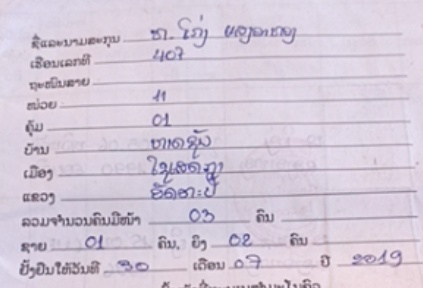 ຊື່ແລະນາມສະກຸນ ທ. ໄກ່
ເຮືອນເລກທີ 407
ຖະໜົນສາຍ
ໜ່ວຍ 11
ຄຸ້ມ 01
ບ້ານ ຫາດຊັນ
ເມືອງ ໄຊເສດຖາ
ແຂວງ ອັດຕະປື
ລວມຈຳນວນຄົນມີໜ້າ 03 ຄົນ
ຊາຍ 01 ຄົນ, ຍິງ 02 ຄົນ
ຢັ້ງຢືນໃຫ້ວັນທີ 30 ເດືອນ 07 ປີ 2019